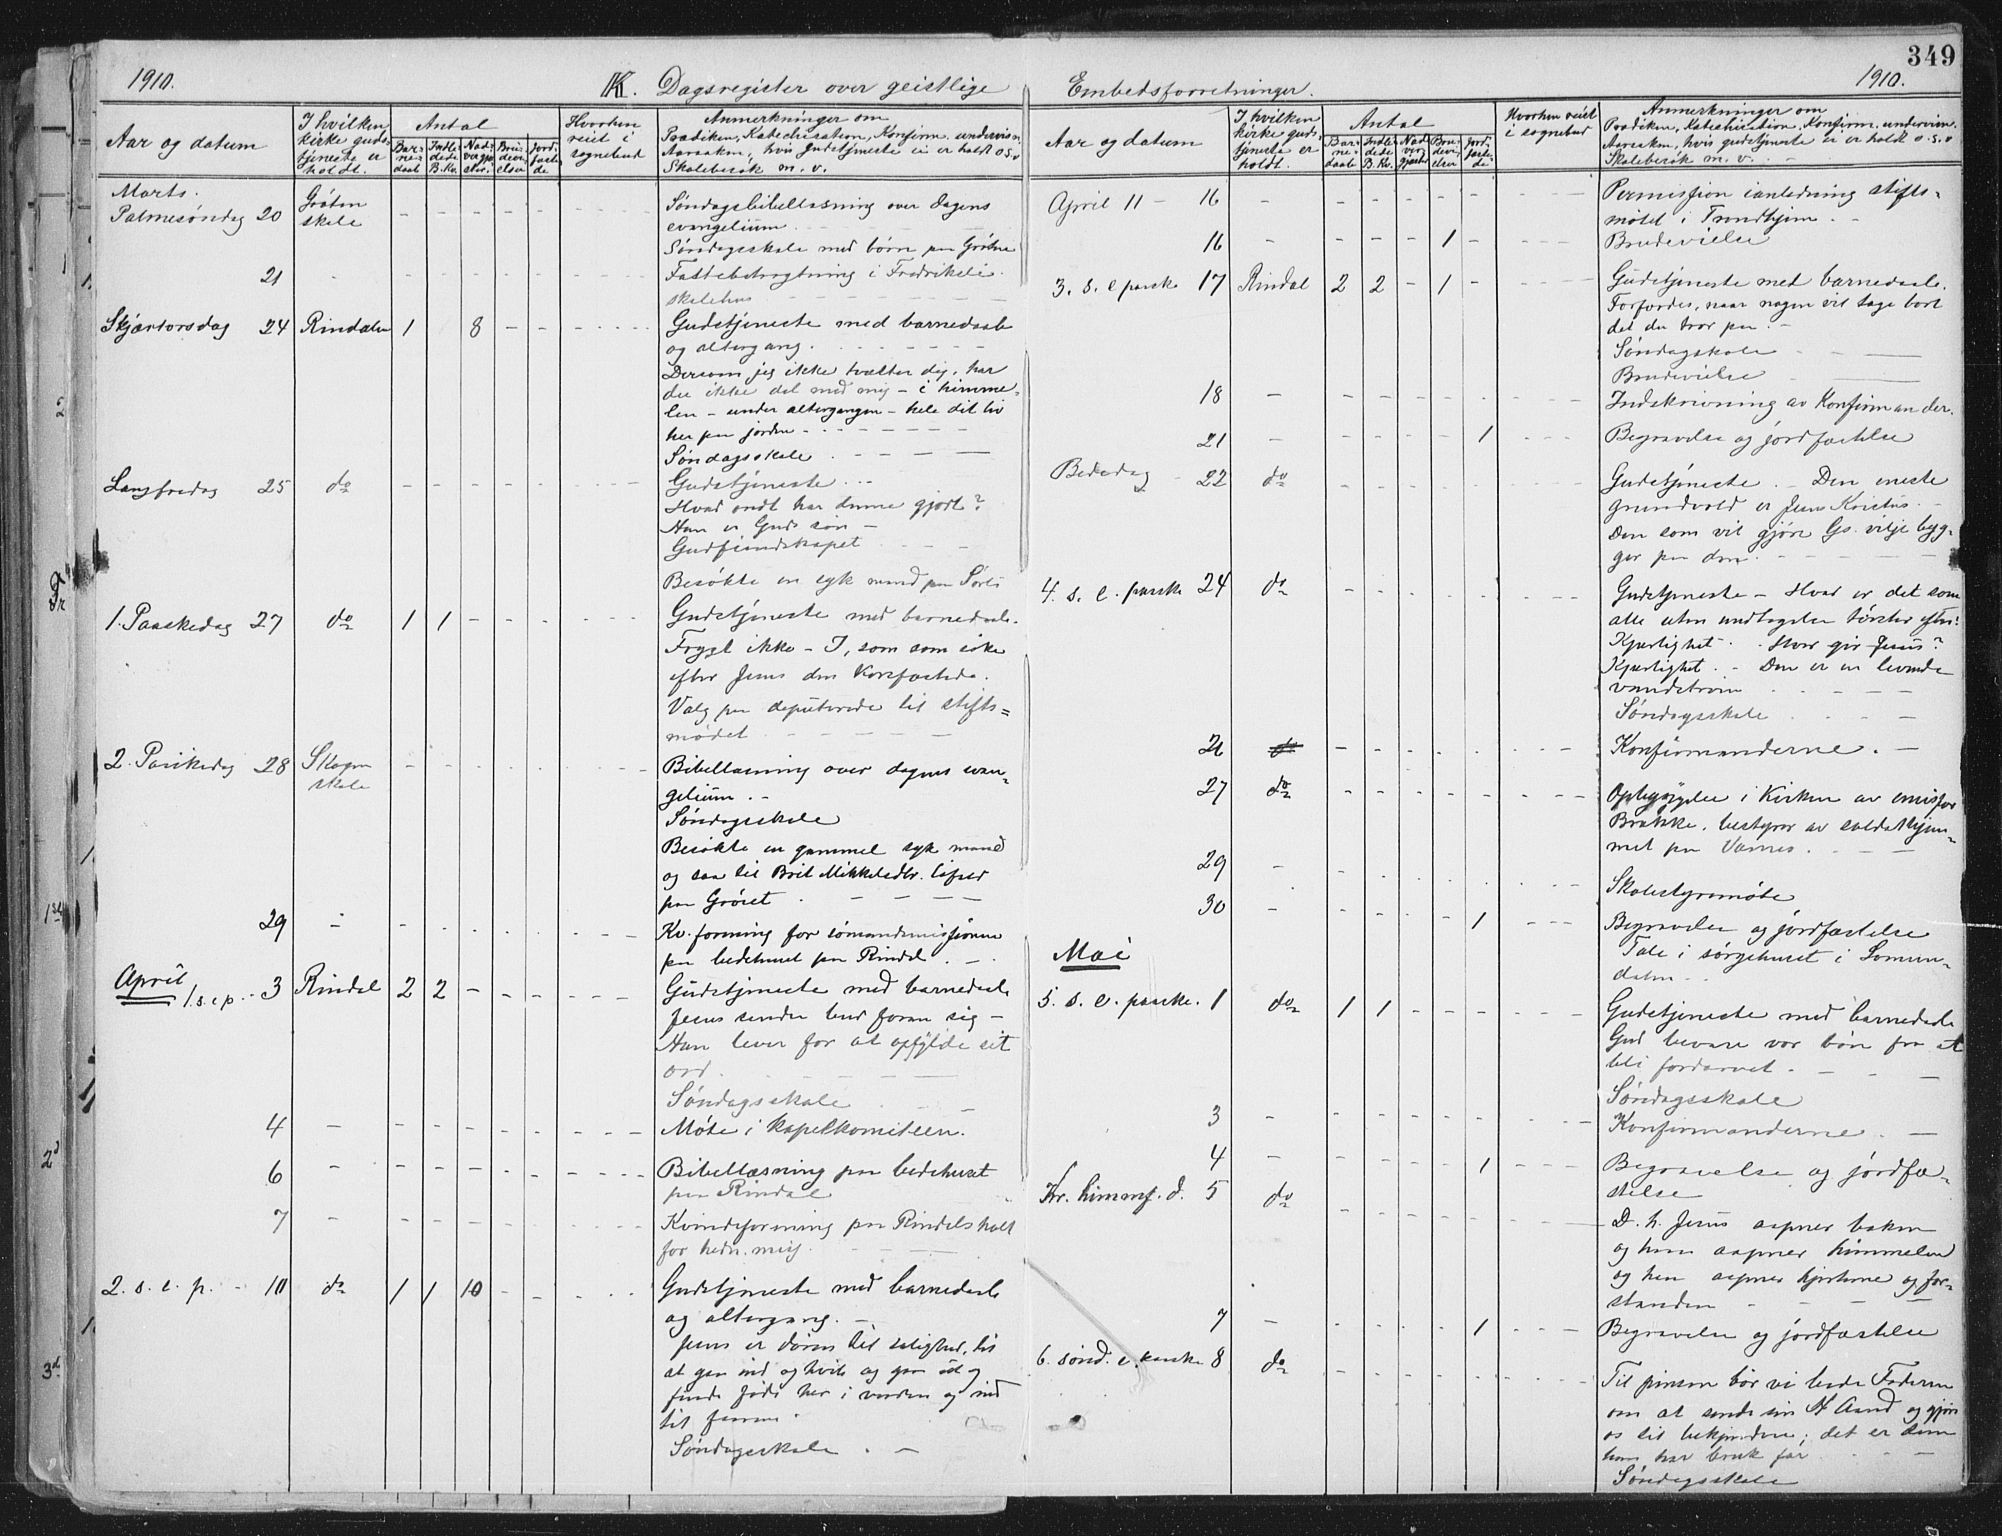 349
1910.
K. Dagsregister over geistlige
Aar og datum
I hvilken kirke gudstjeneste er holdt.
Antal
Barnedaab
Indledede B.Kv.
Nadvergjester.
Brudevielser
Jordfæstede
Hvorhen reist i sognebud
Anmerkninger om
Prædiken, Katechisation, Konfirm. undervisn.
Aarsaken, hvis Gudstjeneste ei er holdt O.S.V
Skolebesøk m. v.
Marts.
Palmesøndag 20 Grøten skole
Søndagsbibellæsning over dagens
evangelium.
Søndagsskole med børn paa Grøtne
21
Fastebetragtning i Fredrikslie
skolehus
Skjærtorsdag 24 Rindalen 1 8 Gudstjeneste med barnedaab
og altergang.
Dersom jeg ikke tvætter dig, har
du ikke del med mig - i himme-
len - under altergangen - hele dit liv
her paa jorden
Søndagsskole
Langfredag 25 do Gudstjeneste
Hvad ondt har denne gjort?
Han er Guds søn -
Gudfiendskapet
Besøkte en syk mand paa Sørli
1. Paaskedag 27 do 1 1 Gudstjeneste med barnedaab.
Frygt ikke - I, som som søke
efter Jesus den Korsfæstede.
Valg paa deputerede til stifts=
mødet
2. Paaskedag 28 Skogen skole
Bibellæsning over dagens evan-
gelium.
Søndagsskole
Besøkte en gammel syk mand
og saa til Brit Mikkelsdtr.
paa Grøset
29 Kv. forening for sømandsmissionen
paa bedehuset paa Rindal.
April
1. s. e p. 3 Rindal 2 2 Gudstjeneste med barnedaab
Jesus sender bud foran sig -
Han lever for at opfylde sit
ord.
Søndagsskole
4 Møte i kapelkomiteen.
6 Bibellæsning paa bedehuset
paa Rindal
7 Kvindeforening paa Rindalsholt
for hedn. miss.
2. s. e. p. 10 do 1 1 10 Gudstjeneste med barnedaab
og altergang.
Jesus er døren til salighed, til
at gaa ind og hvile og gaa ud og
finde føde her i verden og ind
til
Søndagsskole
Embedsforretninger.
1910.
Aar og datum
I hvilken kirke gudstjeneste er holdt.
Antal
Barnedaab
Indledede B.Kv.
Nadvergjester
Brudevielser
Jordfæstede
Hvorhen reist i sognebud
Anmerkninger om
Prædiken, Katechisation, Konfirm. undervisn.
Aarsaken, hvis gudstjeneste ei er holdt O.S.V
Skolebesøk m. v.
April 11 - 16 Permission i anledning stifts=
mötet i Trondhjem.
16 1 Brudevielse
3. s. e paaske 17 Rindal 2 2 - 1 Gudstjeneste med barnedaab.
Forfærdes, naar nogen vil tage bort
det du tror paa.
Søndagskole
Brudevielse
18 Indskrivning av Konfirmander.
21 1 Begravelse og jordfæstelse
Bededag 22 do Gudstjeneste. - Den eneste
grundvold er Jesus Kristus
Den som vil gjøre Gs. vilje byg-
ger paa den.
4. s. e. paaske 24 do Gudstjeneste - Hvad er det som
alle uten undtagelse tørster efter?
Kjærlighet. Hvor gir Jesus?
Kjærlighet. - Den er en levende
vandstrøm
Søndagsskole
Konfirmanderne.
27 do i Kirken av
Brække, bestyrer av soldathjem-
met paa Værnes.
29 Skolestyremøte
30 1 Begravelse og jordfæstelse
Tale i sørgehuset i Lomun-
dalen
Mai
5. s. e. paaske. 1 do 1 1 Gudstjeneste med barnedaab
Gud bevare vor bøn fra at
bli fordærvet.
Søndagsskole
3 Konfirmanderne.
4 1 Begravelse og jordfæ-
stelse
Kr. himmf. d. 5 do D. h. Jesus aapner boken
og han aapner himmelen
og han aapner hjerterne og for-
standen
7 1 Begravelse og jordfæstelse
6. sønd. e. paaske 8 do Til pinsen bør vi bede Faderen
om at sende sin H Aand og gjøre
os til bekjendere; det er dem
han har bruk for
Søndagsskole